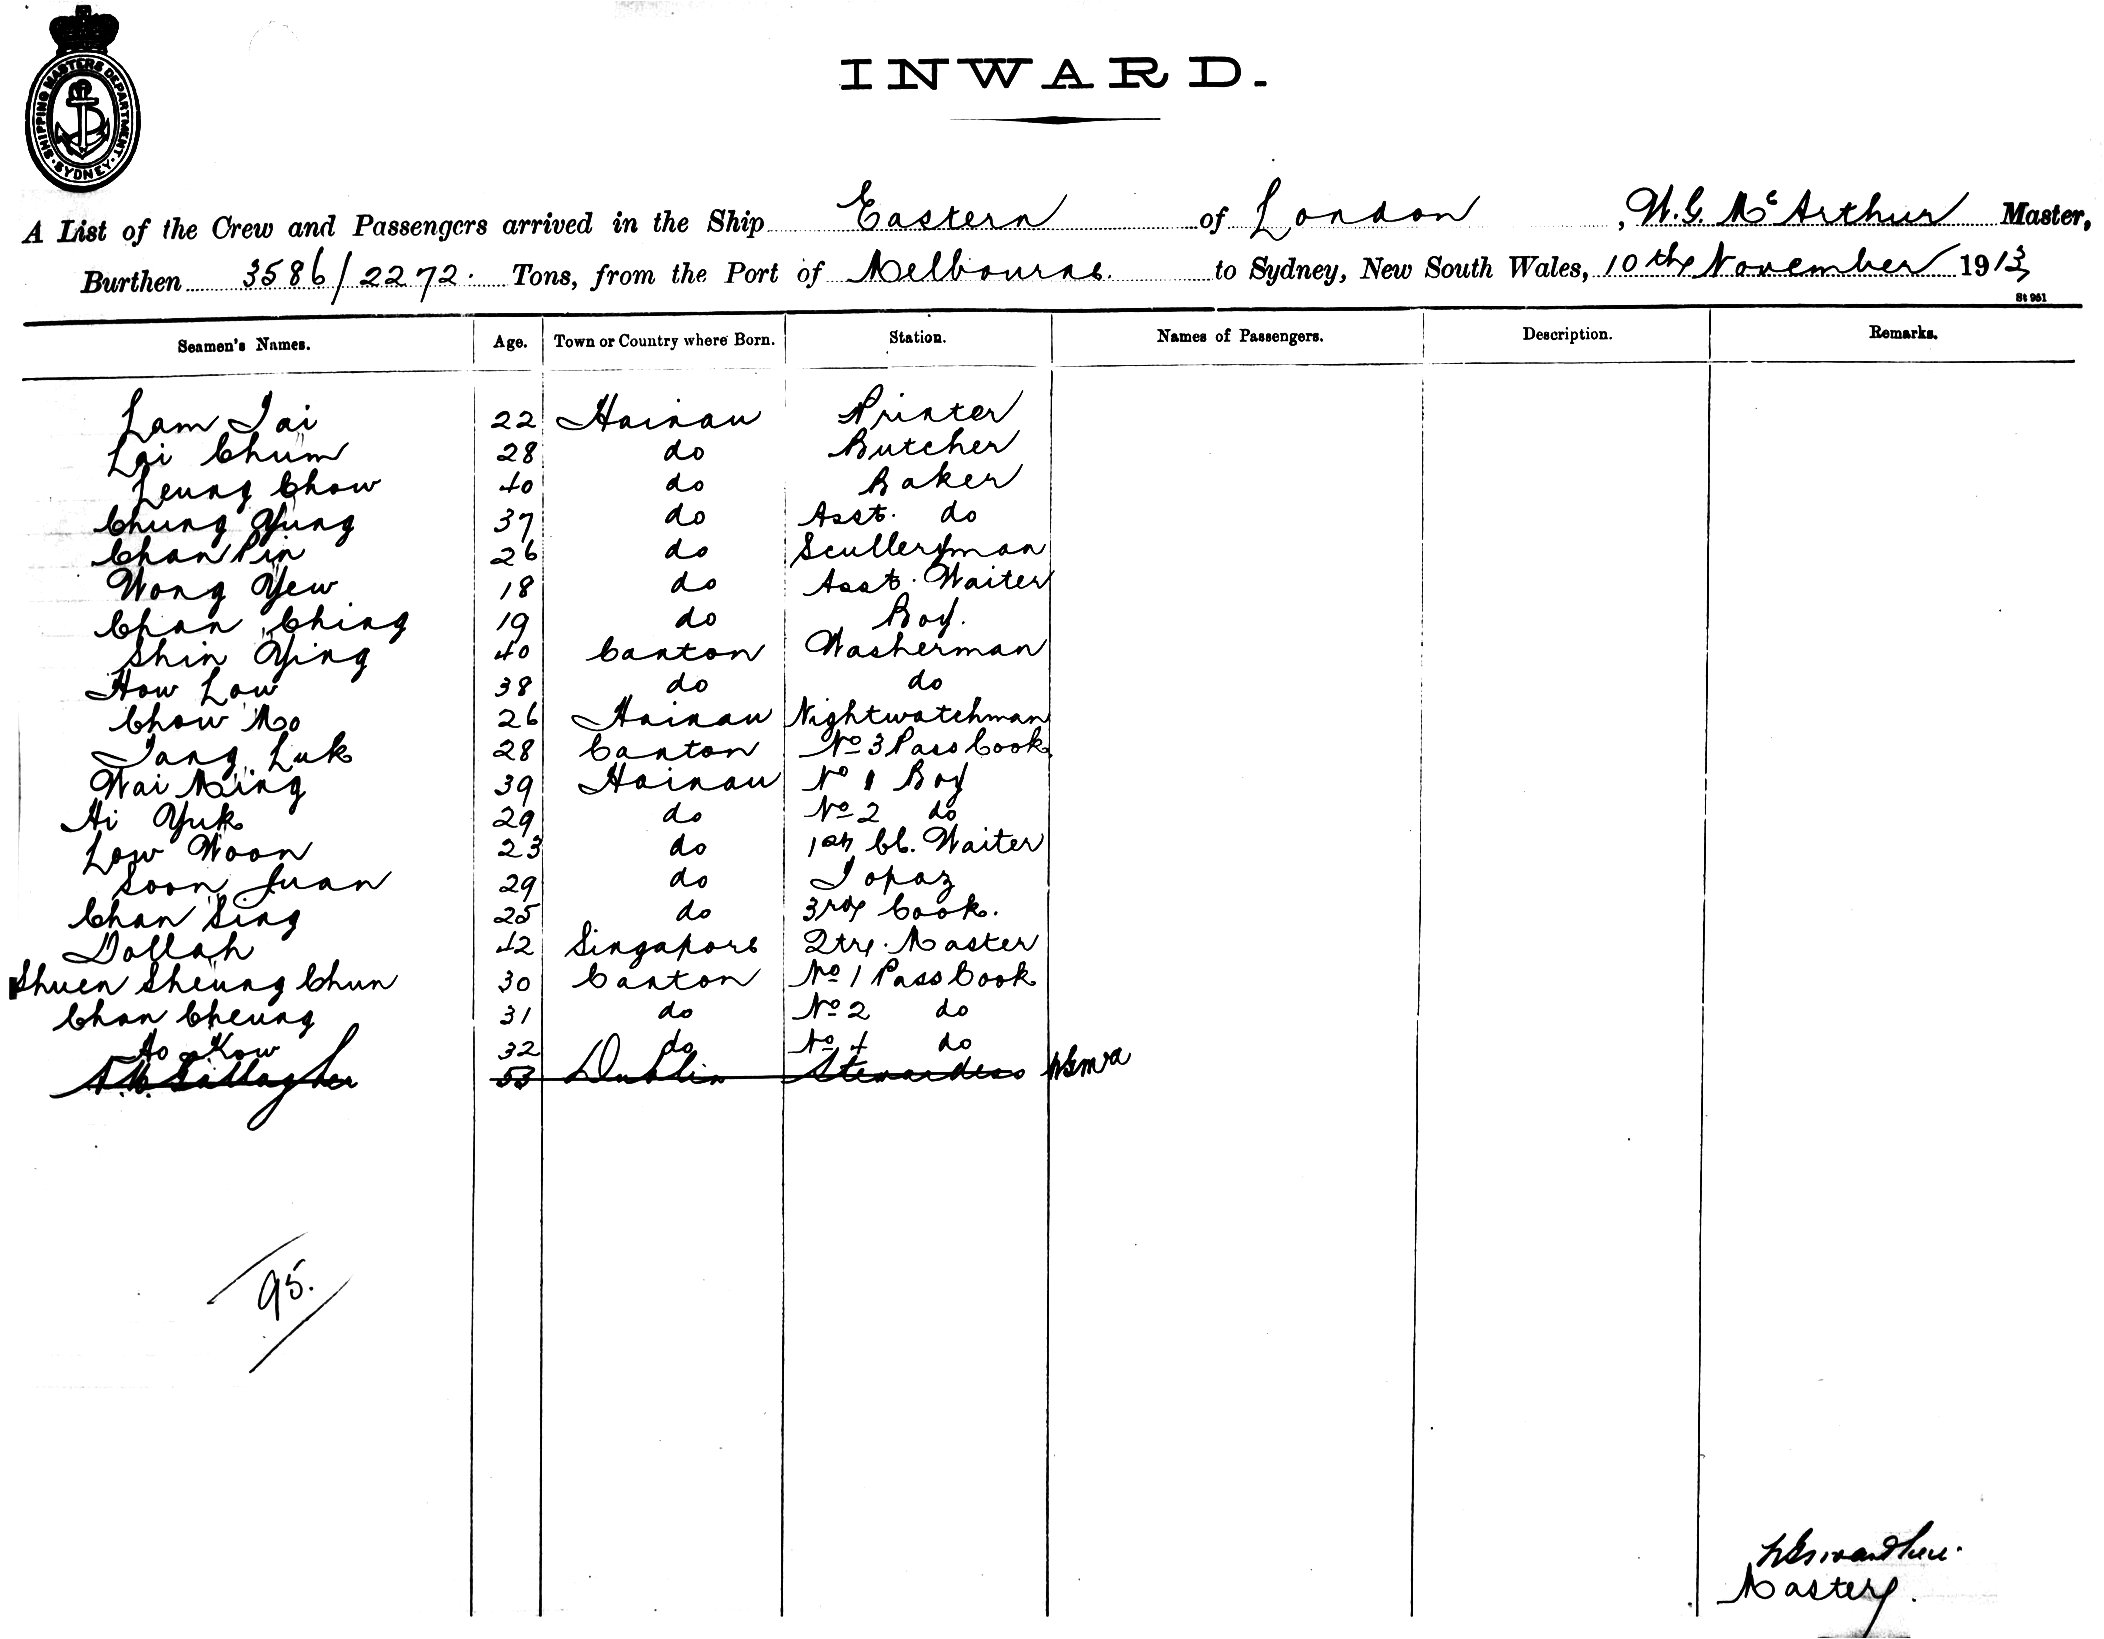 SHIPPING MASTERS DEPARTMENT · SYDNEY ·
INWARD.
A List of the Crew and Passengers arrived in the Ship Eastern of London, W.G. McArthur Master,
Burthen 3586/2272. Tons, from the Port of Melbourne. to Sydney, New South Wales, 10th November 1913
St 961
Seamen's Names. Age. Town or Country where Born. Station. Names of Passengers. Description. Remarks.
Lam Tai 22 Hainau Printer
Loi Chum 28 do Butcher
Leung Chow 40 do Baker
Chung Yung 37 do Asst. do
Chan Pin 26 do Sculleryman
Wong Yew 18 do Asst. Waiter
Chan Ching 19 do Boy.
Shin Ying 40 Canton Washerman
How Low 38 do do
Chow Mo 26 Hainau Nightwatchman
Tang Luk 28 Canton No 3 Pass Cook
Wai Ming 39 Hainau No 1 Boy
Hi Yuk 29 do No 2 do
Low Woon 23 do 1st Cl. Waiter
Soon Juan 29 do Topaz
Chan Sing 25 do 3rd Cook.
Dollah 42 Singapore Qtr. Master
Shuen Sheung Chun 30 Canton No 1 Pass Cook
Chan Cheung 31 do No 2 do
Ho Kow 32 do No 4 do
Gallagher 53 Dublin Stewardess WGMcA
95.
WGMcArthur.
Master.